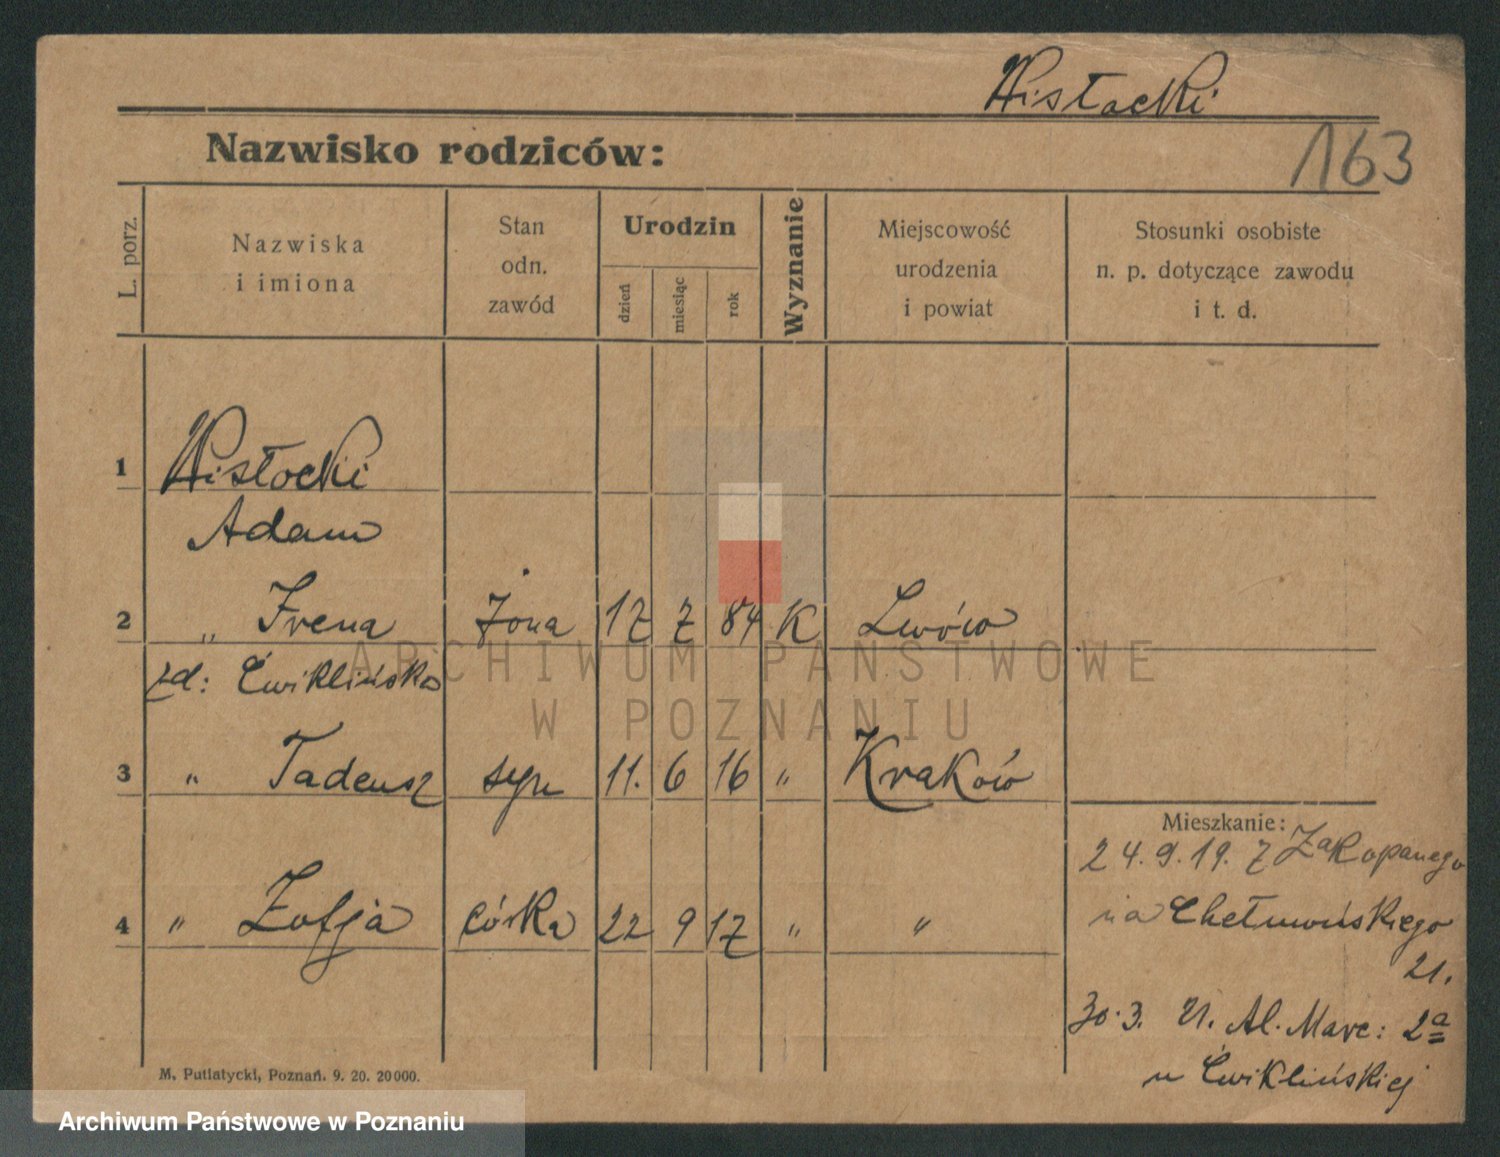 Wisłocki
163
Nazwisko rodziców:
L. porz.
Nazwiska
i imiona
Stan
odn.
zawód
Urodzin
dzień
miesiąc
rok
Wyznanie
Miejscowość
urodzenia
i powiat
Stosunki osobiste
n. p. dotyczące zawodu
i t. d.
1 Wisłocki
Adam
2 „ Irena żona 17 7 84 K Lwów
zd: Ćwiklińska
3 „ Tadeusz syn 11. 6 16 „ Kraków
4 „ Zofja córka 22 9 17 „ „
Mieszkanie:
24.9.19. z Zakopanego
na Chełmońskiego
21.
30.3. 21. Al. Marc: 2a
u Ćwiklińskiej
M. Putiatycki, Poznań. 9. 20. 20000.
ARCHIWUM PAŃSTWOWE
W POZNANIU
Archiwum Państwowe w Poznaniu